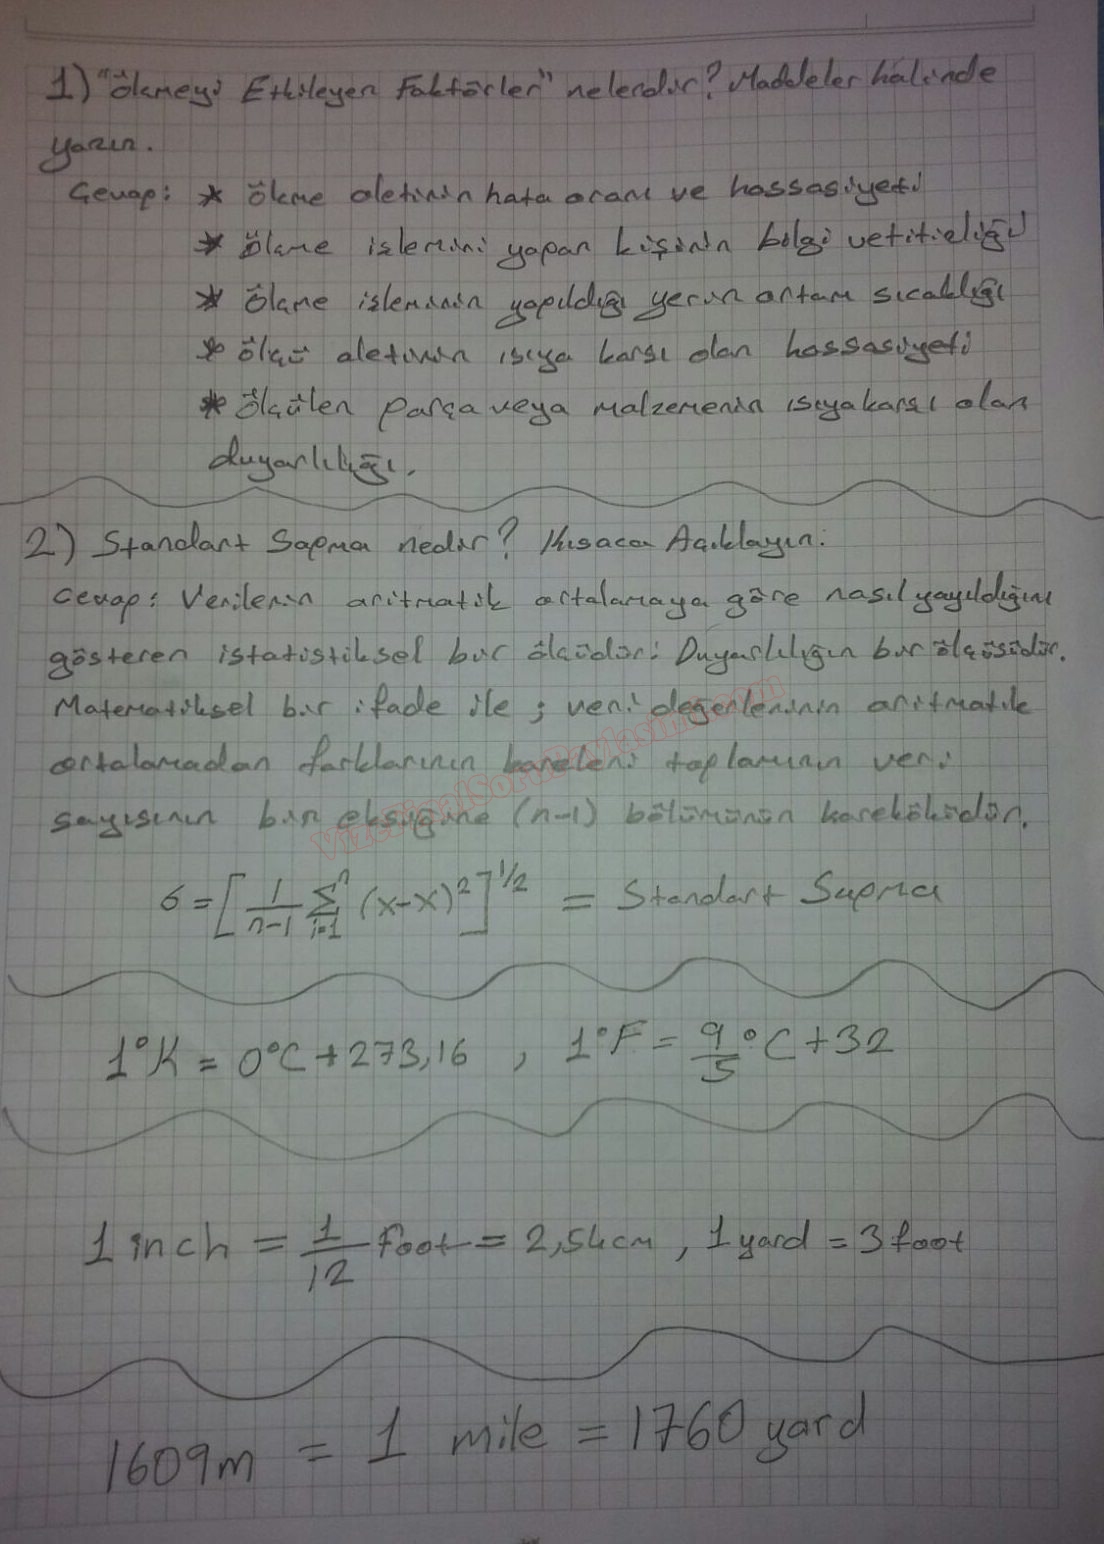 1) "Ölçmeyi Etkileyen Faktörler" nelerdir? Maddeler halinde
yazın.
Cevap: * ölçme aletinin hata oranı ve hassasiyeti
* ölçme işlemini yapan kişinin bilgi
* ölçme işleminin yapıldığı yerin ortam sıcaklığı
* ölçü aletinin ısıya karşı olan hassasiyeti
* ölçülen parça veya malzemenin ısıya karşı olan
duyarlılığı.
2) Standart Sapma nedir? Kısaca Açıklayın:
Cevap: Verilerin aritmatik ortalamaya göre nasıl yayıldığını
gösteren istatistiksel bir ölçüdür. Duyarlılığın bir ölçüsüdür.
Matematiksel bir ifade ile ; veri değerlerinin aritmatik
ortalamadan farklarının kareleri toplamının veri
sayısının bir eksiğine (n-1) bölümünün kareköküdür.
VizeFinalSoruPaylasimi.com
σ = [1/n-1 Σ i=1 n (x-x)²]^1/2 = Standart Sapma
1°K = 0°C + 273,16 , 1°F = 9/5 °C + 32
1 inch = 1/12 foot = 2,54cm , 1 yard = 3 foot
1609m = 1 mile = 1760 yard